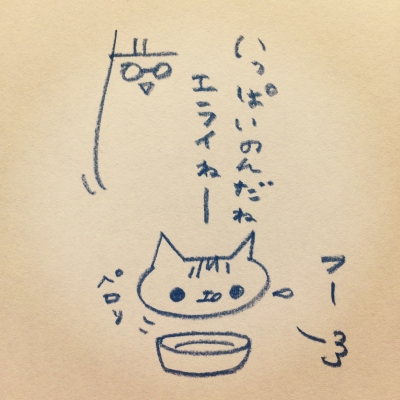 いっぱいのんだね
エライねー
フー
ペロッ